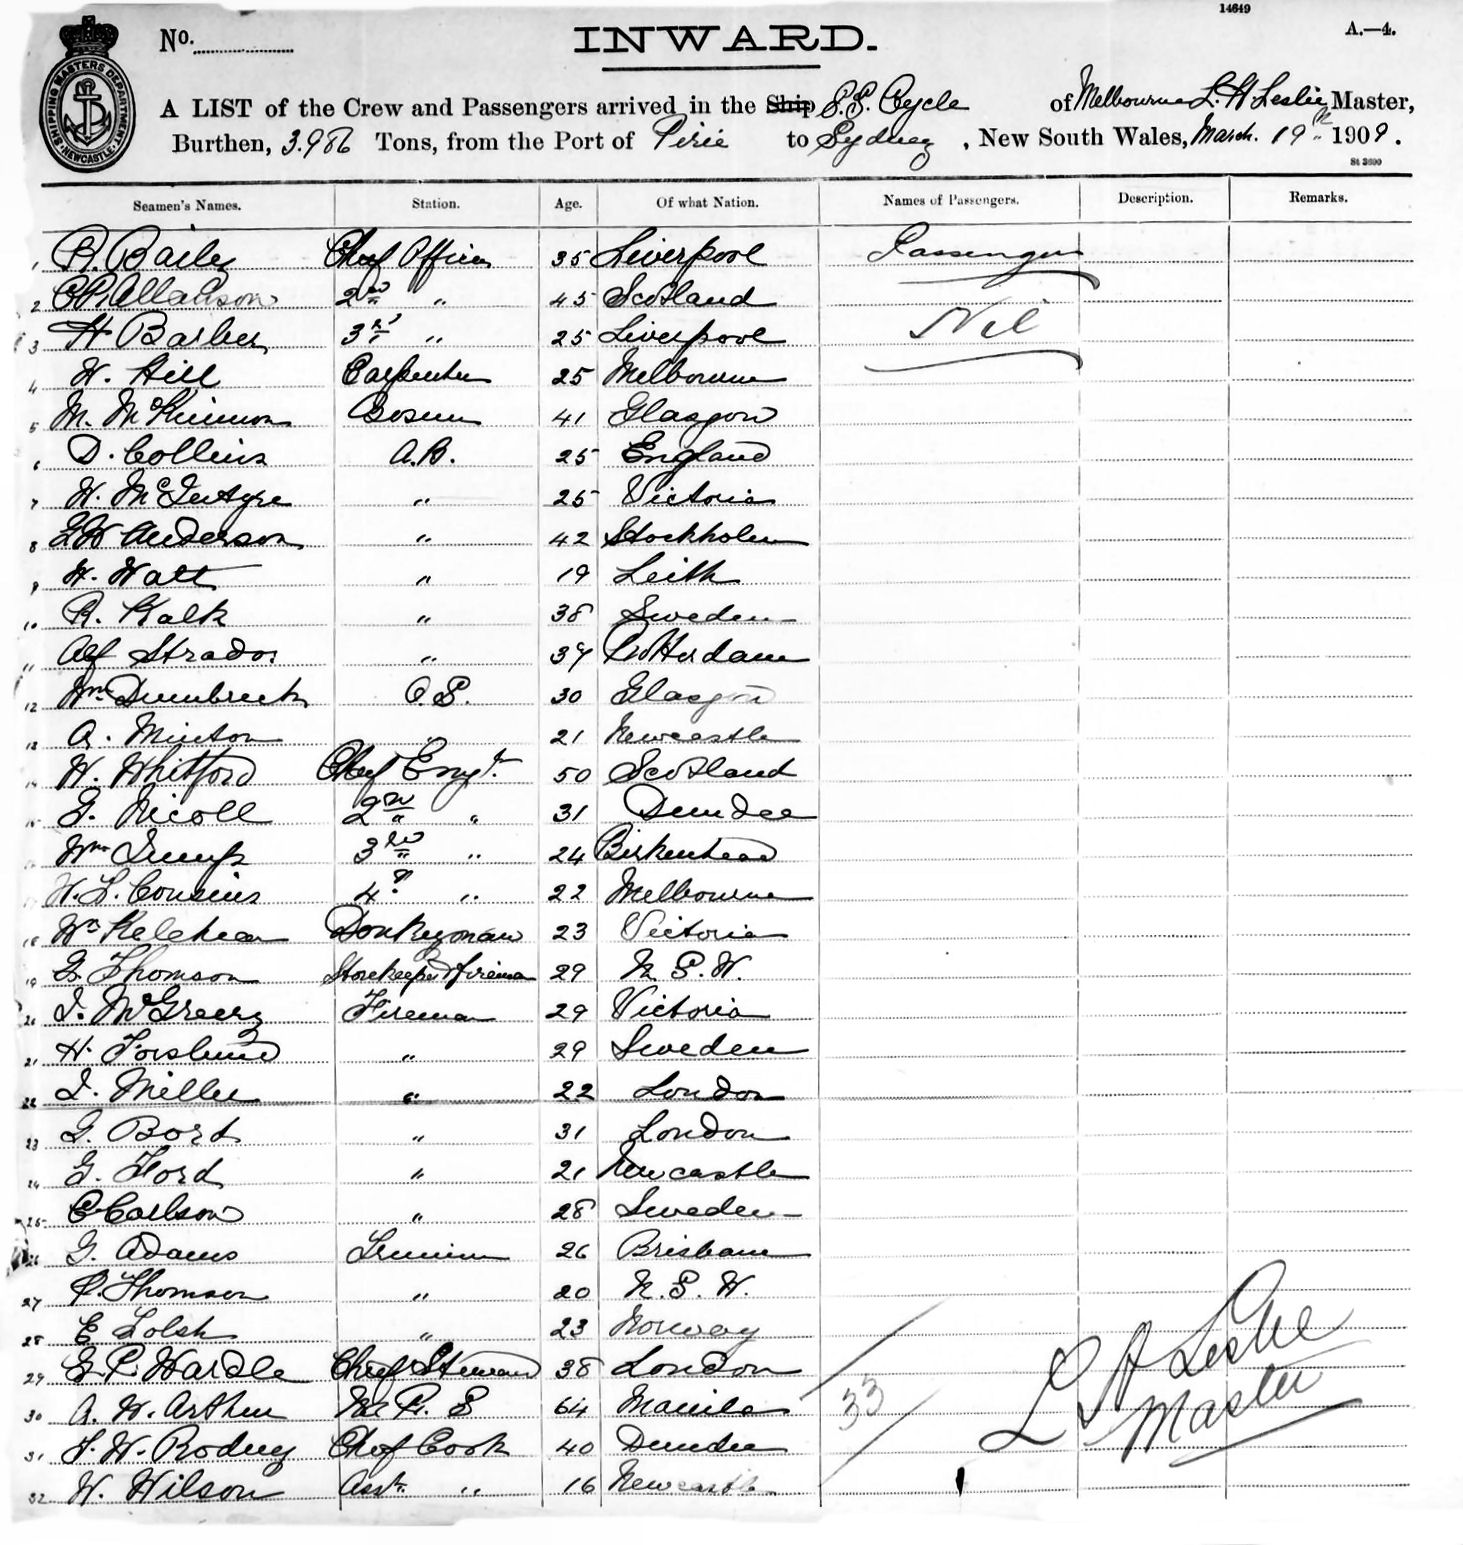 14649
No.
INWARD.
A.—4.
SHIPPING MASTERS DEPARTMENT NEWCASTLE
A LIST of the Crew and Passengers arrived in the Ship S.S. Aycle of Melbourne L. H Leslie Master,
Burthen, 3.986 Tons, from the Port of Pirie to Sydney, New South Wales, March. 19th 1909.
St 3600
Seamen's Names. Station. Age. Of what Nation. Names of Passengers. Description. Remarks.
1 R. Bailey Chief Officer 35 Liverpool Passengers
2 Allanson 2nd " 45 Scotland
3 H Barber 3rd " 25 Liverpool Nil
4 W. Hill Carpenter 25 Melbourne
5 M. McKinnon Bosun 41 Glasgow
6 D. Collins A.B. 25 England
7 W. McIntyre " 25 Victoria
8 Anderson " 42 Stockholm
9 W. Watt " 19 Leith
10 R. Kalk " 38 Sweden
11 Alf Strador " 39 Rotterdam
12 Wm Dumbreck O.S. 30 Glasgow
13 A. Minton 21 Newcastle
14 W. Whitford Chief Engr. 50 Scotland
15 G. Nicoll 2nd " 31 Dundee
16 Wm 3rd " 24 Birkenhead
17 W. L. Cousins 4th " 22 Melbourne
18 Wm Kelehear Donkeyman 23 Victoria
19 G. Thomson Storekeeper & fireman 29 N. S. W.
20 J. McGreery Fireman 29 Victoria
21 H. Forslund " 29 Sweden
22 J. Miller " 22 London
23 G. Bord " 31 London
24 G. Ford " 21 Newcastle
25 C Carlson " 28 Sweden
26 G. Adams Trimmer 26 Brisbane
27 P. Thomson " 20 N. S. W.
28 E " 23 Norway
29 Wardle Chief Steward 38 London
30 A. W. Arthur M R. S 64 Manila
31 J. W. Rodney Chef Cook 40 Dundee
32 W. Wilson Asst. " 16 Newcastle
33
L H Leslie
Master